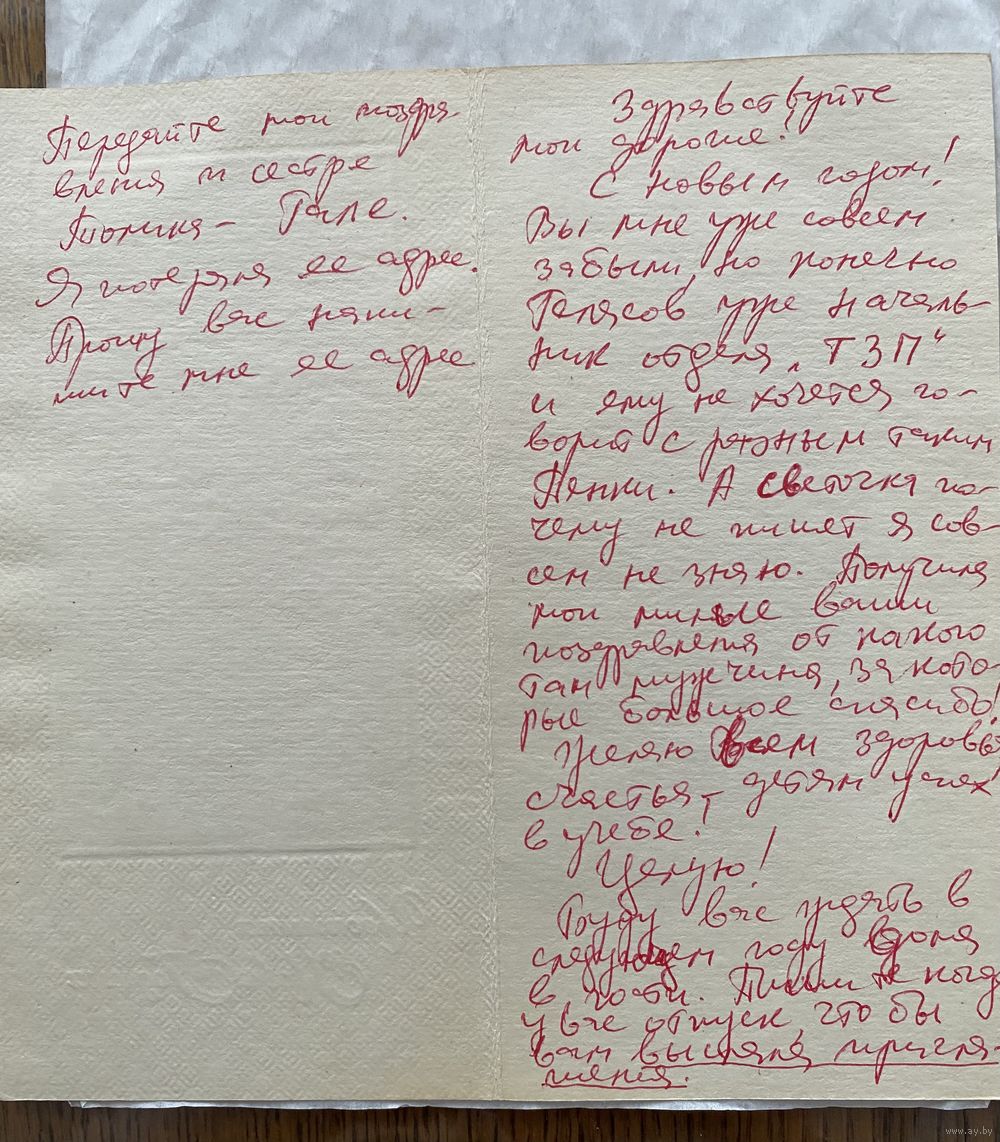 Передайте мои поздра-
вления и сестре
Толика - Гале.
Я потеряла ее адрес.
Прошу вас напи-
шите мне ее адрес
Здравствуйте
мои дорогие!
С новым годом!
Вы мне уже совсем
забыли, но конечно
уже началь-
ник отдела „ТЗП“
и ему не хочется го-
ворит с разным таким
Пенки. А Светочка по-
чему не пишет я сов-
сем не знаю. Получила
мои милые ваши
поздравления от какого
там мужчина, за кото-
рые большое спасибо!
Желаю Всем здоровья
счастья, детям успех
в учебе!
Целую!
Буду вас ждать в
следующем году дома
в гости. Пишите когда
у вас отпуск, что бы
вам выслала пригла-
шения.
www.ay.by